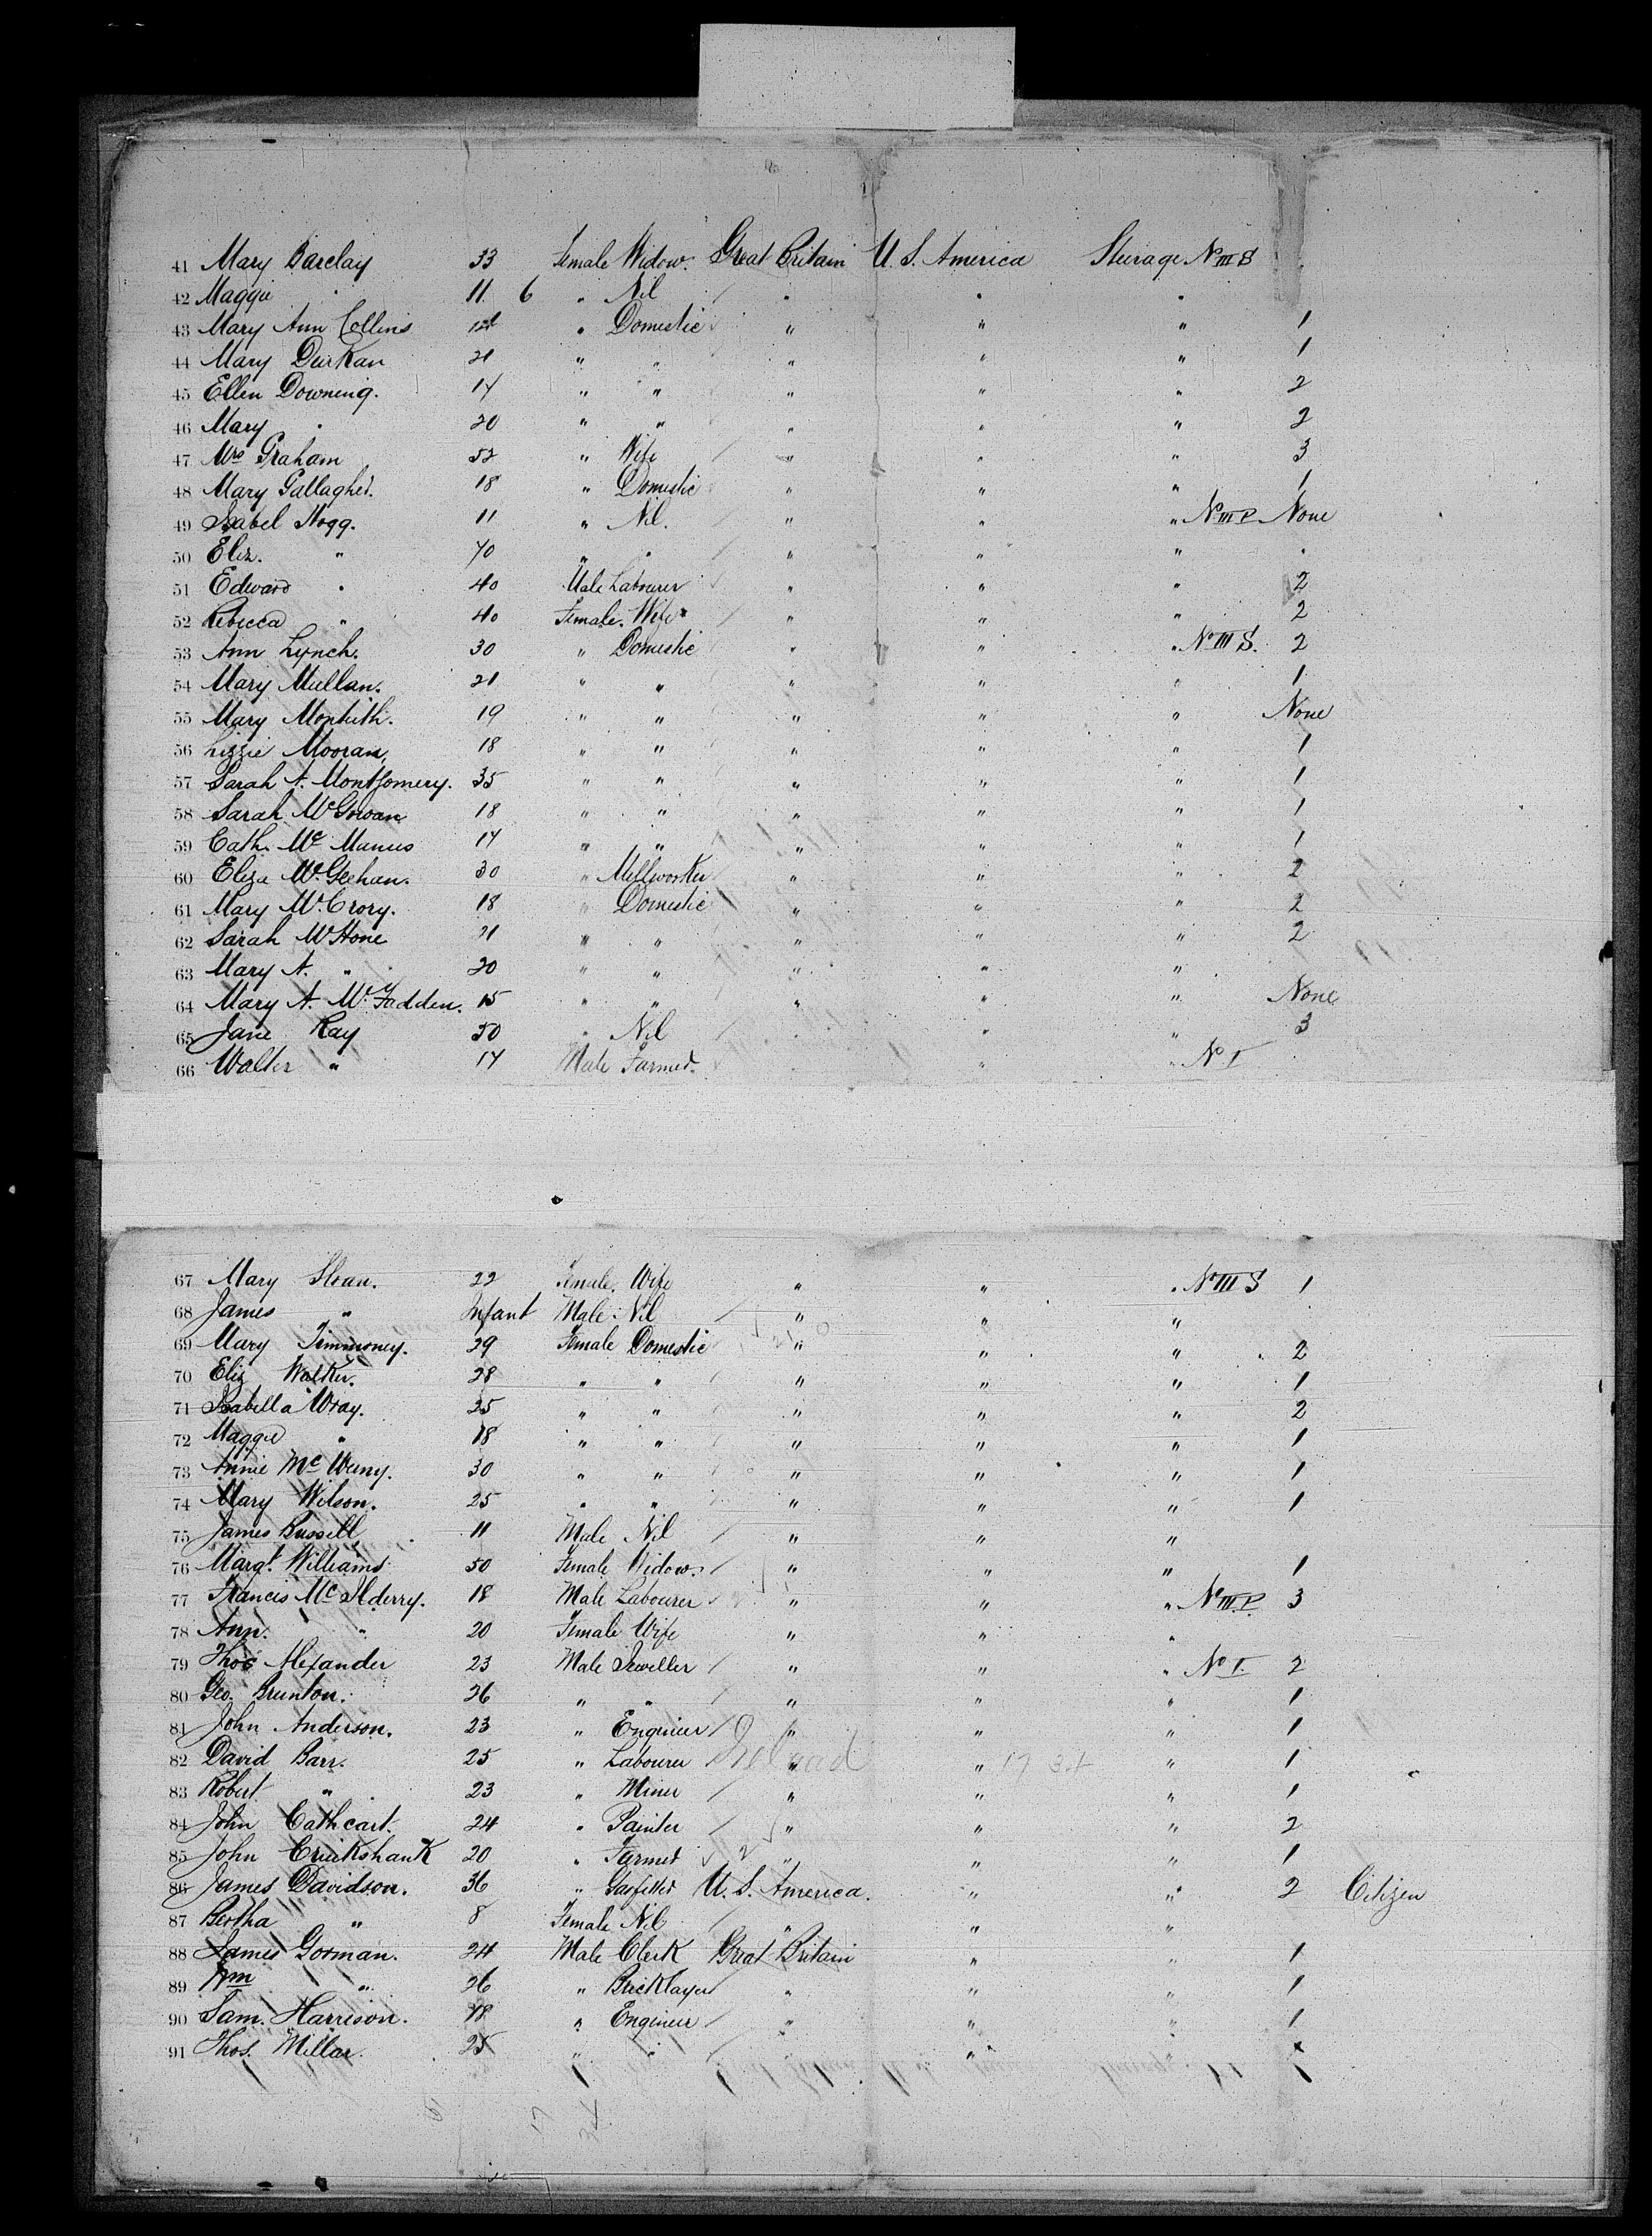 41 Mary Barclay 33 Female Widow. Great Britain U. S. America Steerage No III S
42 Maggie " 11 6 " Nil " " "
43 Mary Ann Collins " Domestic " " " 1
44 Mary Durkan 21 " " " " " 1
45 Ellen Downing. 17 " " " " " 2
46 Mary " 20 " " " " " 2
47 Mrs Graham 52 " Wife " " " 3
48 Mary Gallagher. 18 " Domestic " " " 1
49 Isabel Hogg. 11 " Nil. " " " No III P None
50 Eliz. " 70 " " " " " "
51 Edward " 40 Male Labourer " " " 2
52 Rebecca " 40 Female. Wife " " " 2
53 Ann Lynch. 30 " Domestic " " " No III S. 2
54 Mary Mullan. 21 " " " " " 1
55 Mary Monteith. 19 " " " " " None
56 Lizzie Mooran 18 " " " " " 1
57 Sarah A. Montgomery. 35 " " " " " 1
58 Sarah McGowan 18 " " " " " 1
59 Cath. Mc Manus 17 " " " " " 1
60 Eliza McGeehan. 30 " Millworker " " " 2
61 Mary McCrory. 18 " Domestic " " " 2
62 Sarah McHone 21 " " " " " 2
63 Mary A. " 20 " " " " "
64 Mary A. McFadden. 15 " " " " " None
65 Jane Kay " Nil " " " 3
66 Walter " 17 Male Farmer. " " " No I
67 Mary Sloan. 22 Female. Wife " " " No III S 1
68 James " Infant Male. Nil " " "
69 Mary Timmoney. 29 Female Domestic " " " 2
70 Eliz Walker. 28 " " " " " 1
71 Isabella Wray. 25 " " " " " 2
72 Maggie " 18 " " " " " 1
73 Annie Mc 30 " " " " " 1
74 Mary Wilson. 25 " " " " " 1
75 James Russell 11 Male Nil " " "
76 Margt. Williams 50 Female Widow. " " " 1
77 Francis Mc Ilderry. 18 Male Labourer " " " No III. P. 3
78 Ann. " 20 Female Wife " " "
79 Thos Alexander 23 Male Jeweller " " " No I. 2
80 Geo. Brunton. 26 " " " " " 1
81 John Anderson. 23 " Engineer " " " 1
82 David Barr. 25 " Labourer Ireland " " 17 34 " 1
83 Robert " 23 " Miner " " " 1
84 John Cathcart. 24 " Painter " " " 2
85 John Cruickshank 20 " Farmer " " " 1
86 James Davidson. 36 " Gasfitter U. S. America. " " 2 Citizen
87 Bertha " 8 Female Nil " " "
88 James Gorman. 24 Male Clerk Great Britain " " 1
89 Wm " 26 " Bricklayer " " " 1
90 Sam. Harrison. 18 " Engineer " " " 1
91 Thos. Millar. 25 " " " " " "